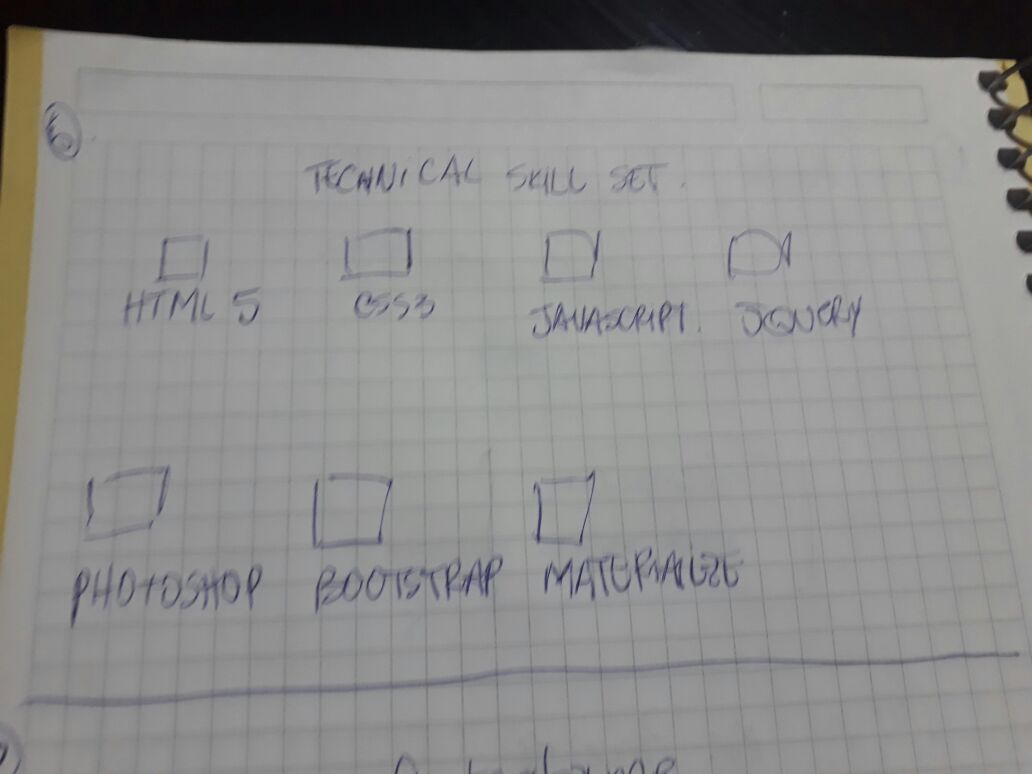 TECHNICAL SKILL SET.
HTML 5 CSS3 JAVASCRIPT. JQUERY
PHOTOSHOP BOOTSTRAP MATERIALIZE